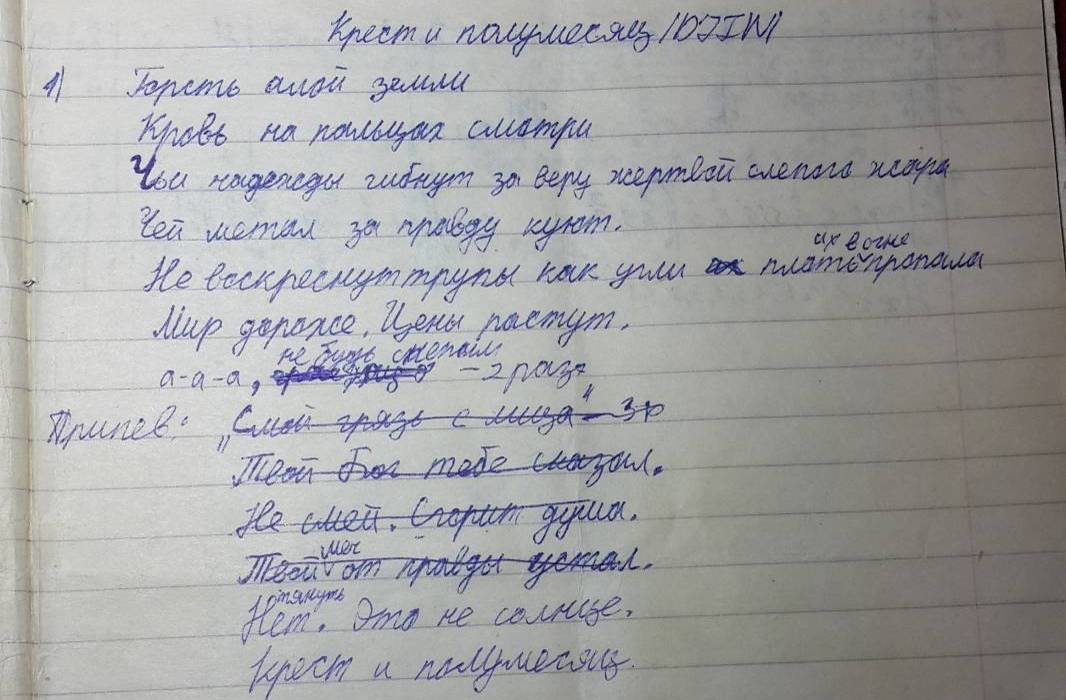 Крест и полумесяц /DJIN/
1) Горсть алой земли
Кровь на пальцах смотри
Чьи надежды гибнут за веру жертвой слепого жара
Чей метал за правду куют.
их в огне
Не воскреснут трупы как угли плать пропала
Мир дороже. Цены растут.
не будь слепым
а-а-а, – 2 раза
Припев: "Смой грязь с лица" – 3р
Твой Бог тебе сказал.
Не смей. Сгорит душа.
меч
Твой от правды устал.
тянуть
Нет. Это не солнце.
Крест и полумесяц.